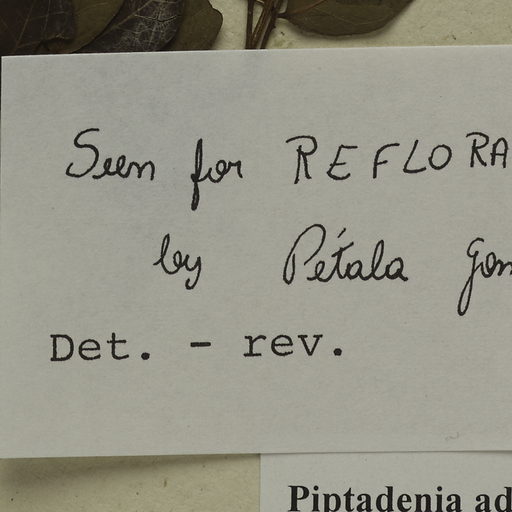 Seen for REFLORA
by Pétala Gon
Det. - rev.
Piptadenia ad